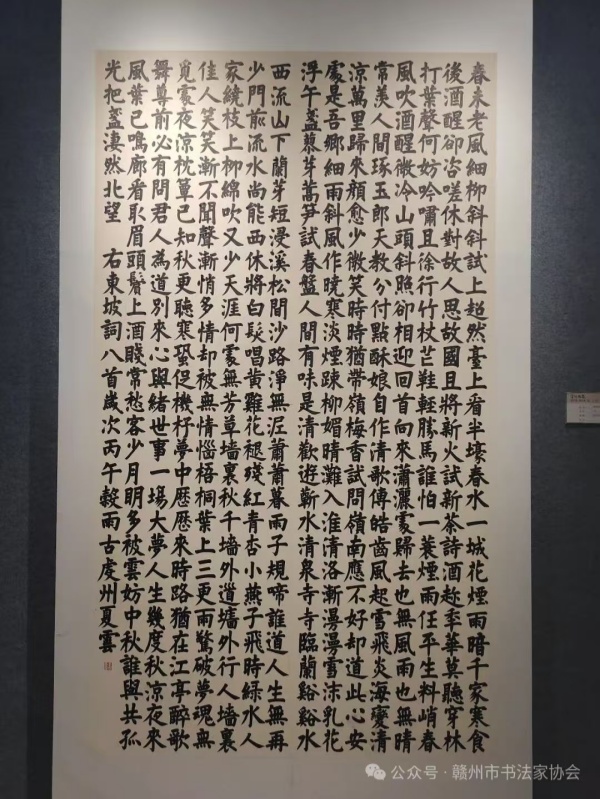 春未老風細柳斜斜試上超然臺上看半壕春水一城花煙雨暗千家寒食
後酒醒卻咨嗟休對故人思故國且將新火試新茶詩酒趁年華莫聽穿林
打葉聲何妨吟嘯且徐行竹杖芒鞋輕勝馬誰怕一蓑煙雨任平生料峭春
風吹酒醒微冷山頭斜照卻相迎回首向來瀟灑處歸去也無風雨也無晴
常羨人間琢玉郎天教分付點酥娘自作清歌傳皓齒風起雪飛炎海變清
涼萬里歸來顏愈少微笑時時猶帶嶺梅香試問嶺南應不好卻道此心安
處是吾鄉細雨斜風作曉寒淡煙疎柳媚晴灘入淮清洛漸漫漫雪沫乳花
浮午盞蓼芽蒿笋試春盤人間有味是清歡遊蘄水清泉寺寺臨蘭谿谿水
西流山下蘭芽短浸溪松間沙路淨無泥蕭蕭暮雨子規啼誰道人生無再
少門前流水尚能西休將白髮唱黃雞花褪殘紅青杏小燕子飛時綠水人
家繞枝上柳綿吹又少天涯何處無芳草墻裏秋千墻外道墻外行人墻裏
佳人笑笑漸不聞聲漸情多情却被無情惱梧桐葉上三更雨驚破夢魂無
覓處夜涼枕簟已知秋更聽寒蛩促機杼夢中歷歷來時路猶在江亭醉歌
舞尊前必有問君人為道別來心與緒世事一場大夢人生幾度秋涼夜來
風葉已鳴廊看取眉頭鬢上酒賤常愁客少月明多被雲妨中秋誰與共孤
光把盞淒然北望 右東坡詞八首歲次丙午穀雨古虔州夏雲
公众号·赣州市书法家协会